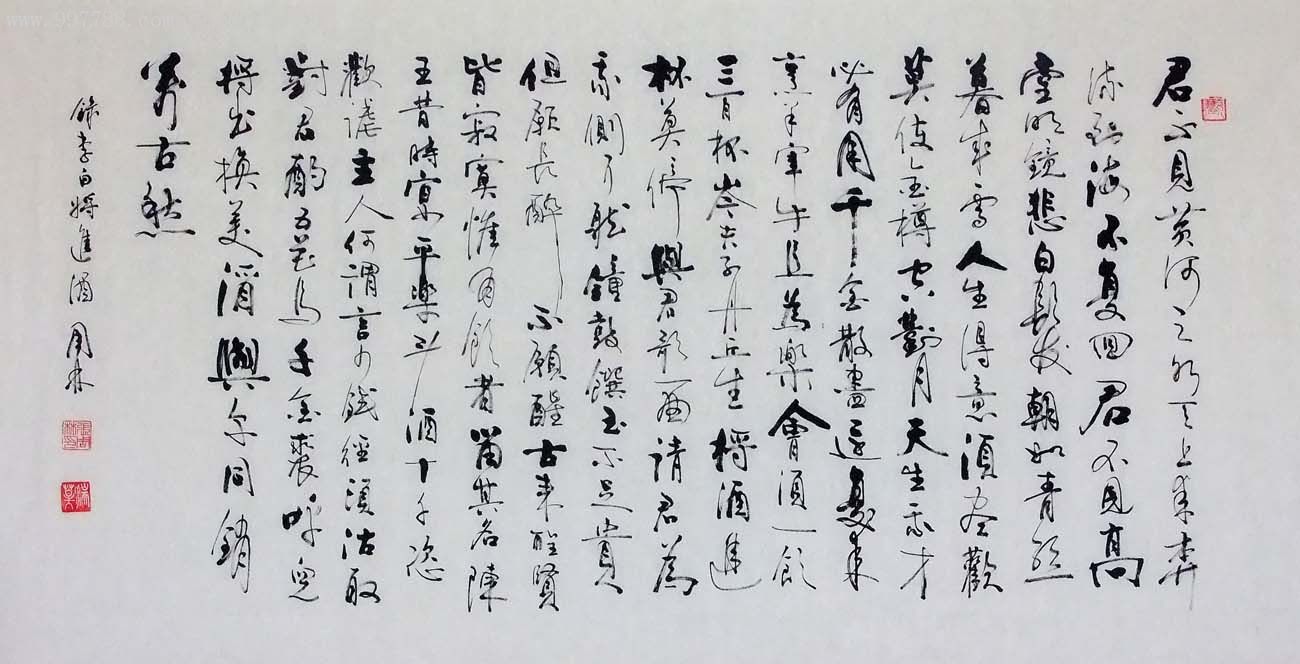 www.997788.com
君不見黃河之水天上來奔
流到海不复回君不見高
堂明鏡悲白髮朝如青絲
暮成雪人生得意須盡歡
莫使金樽空對月天生我才
必有用千金散盡還复來
烹羊宰牛且為樂會須一飲
三百杯岑夫子丹丘生將酒進
杯莫停與君歌一曲請君為
我側耳聽鐘鼓饌玉不足貴
但願長醉不願醒古來聖賢
皆寂寞惟有飲者留其名陳
王昔時宴平樂斗酒十千恣
歡謔主人何謂言少錢徑須沽取
對君酌五花馬千金裘呼兒
將出換美酒與尔同銷
萬古愁
錄李白將進酒 周林